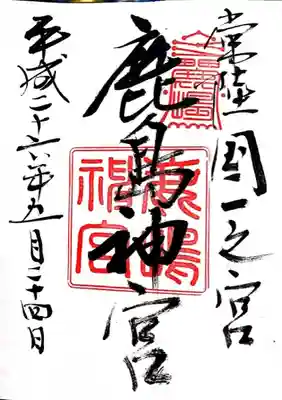 常陸國一之宮
鹿島神宮
平成二十六年五月二十四日
鹿嶋神宮